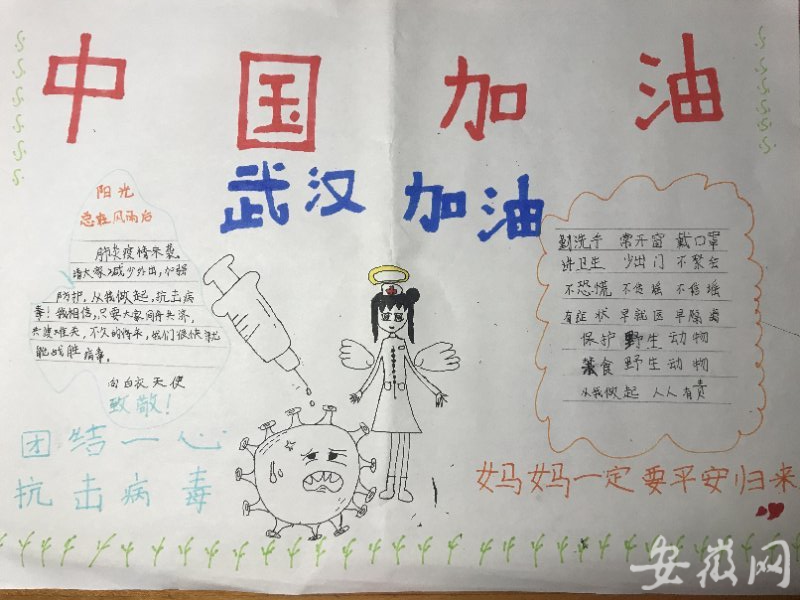 中国加油
武汉加油
阳光
总在风雨后
肺炎疫情来袭
请大家减少外出,加强
防护,从我做起,抗击病
毒!我相信,只要大家同舟共济,
共渡难关,不久的将来,我们很快就
能战胜病毒。
向白衣天使
致敬!
团结一心
抗击病毒
勤洗手 常开窗 戴口罩
讲卫生 少出门 不聚会
不恐慌 不造谣 不传谣
有症状 早就医 早隔离
保护野生动物
禁食野生动物
从我做起 人人有责
妈妈一定要平安归来
安徽网